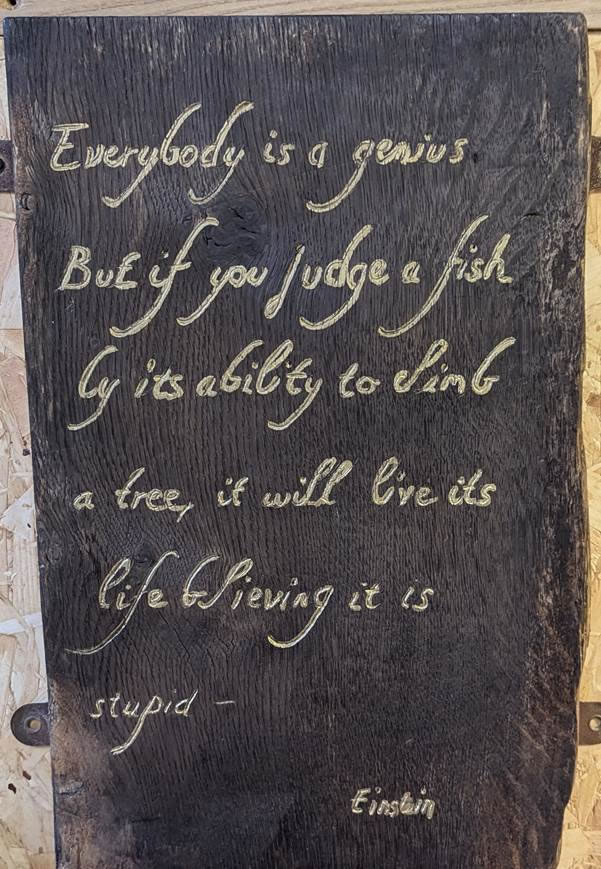 Everybody is a genius
But if you judge a fish
by its ability to climb
a tree, it will live its
life blieving it is
stupid –
Einstein